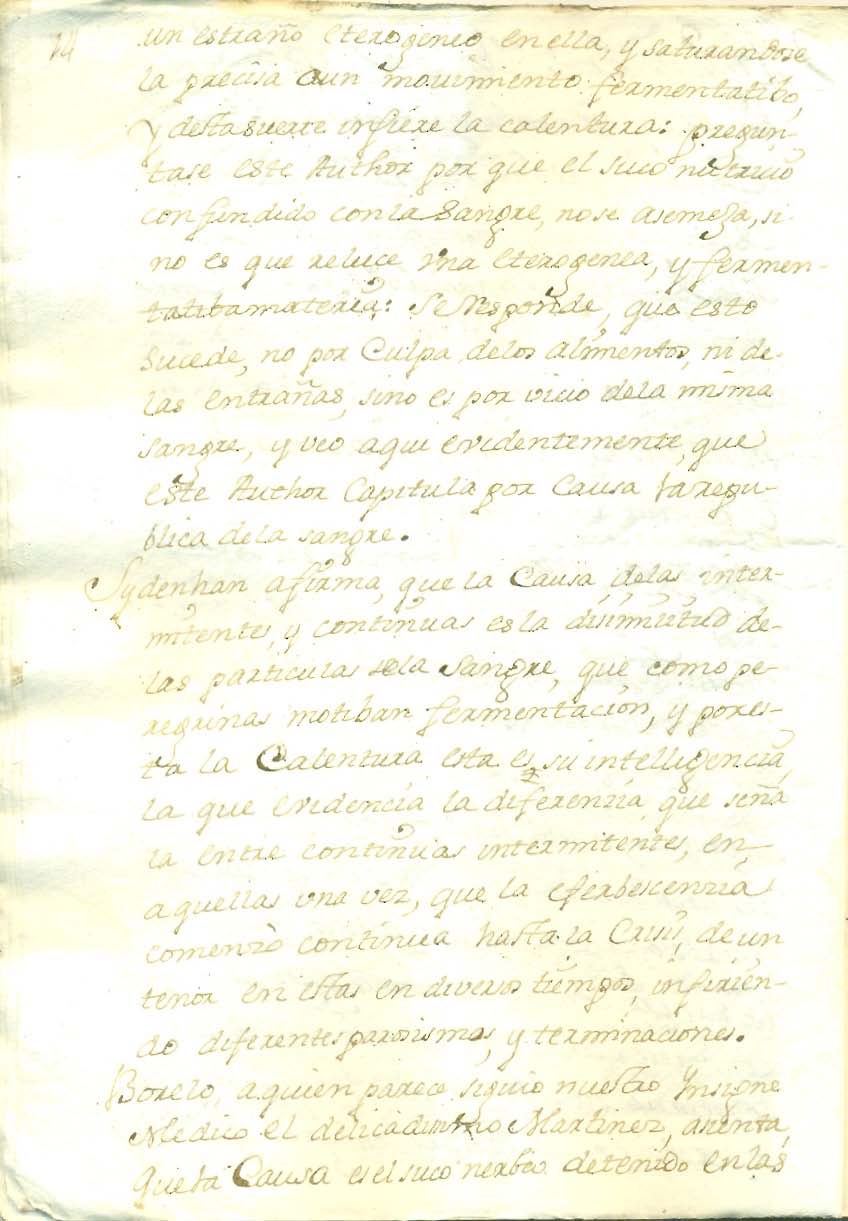 14
un estraño eterogeneo en ella, y saturandose
la precisa aun mouimiento fermentatibo,
y desta suerte infiere la calentura: pregun-
tase este Author por que el suco nutricio
confundido con la sangre, no se asemeja, si
no es que reluce vna eterogenea, y fermen-
tatiba materia: se responde, que esto
sucede, no por Culpa delos alimentos, ni de
las entrañas, sino es por vicio dela misma
sangre, y veo aqui evidentemente, que
este Author Capitula por Causa la repu-
blica dela sangre.
Sydenhan afirma, que la Causa delas inter-
mitentes, y continuas es la disimilitud de-
las particulas dela sangre, que como pe-
regrinas motiban fermentacion, y por es-
ta la Calentura esta es su intelligencia,
la que evidencia la diferenzia que seña
la entre continuas intermitentes, en
aquellas vna vez, que la eferbescenzia
comenzò continua hasta la Crisis, de un
tenor en estas en diversos tiempos, infirien-
do diferentes paroxismos, y terminaciones.
Borelo, a quien parece siguio nuestro Ynsigne
Medico el delicadissimo Martinez, asienta,
que la Causa es el suco nerbeo detenido en las